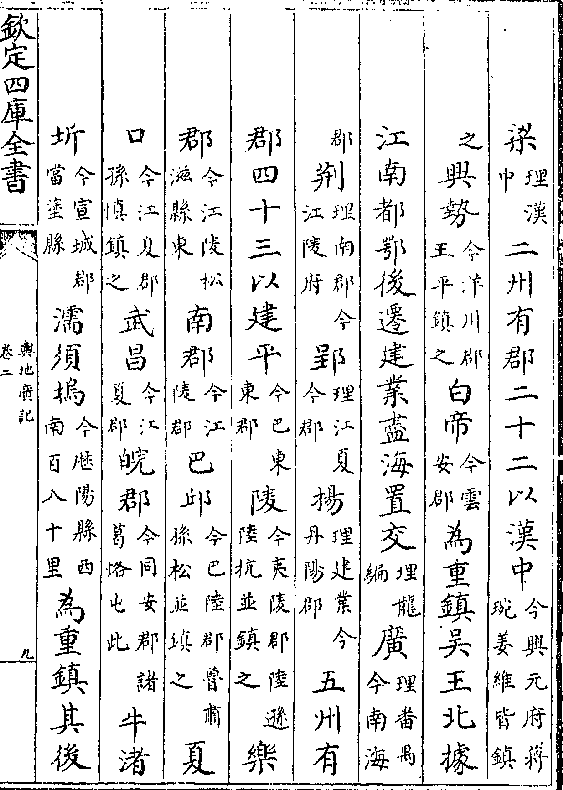 梁理漢中二州有郡二十二以漢中今興元府蔣琬姜維皆鎮
之興勢今洋川郡王平鎮之白帝今雲安郡為重鎮吳王北據
江南都鄂後遷建業盡海置交理龍編廣理番禺今南海
郡荆理南郡今江陵府郢理江夏今郡揚理建業今丹陽郡五州有
郡四十三以建平今巴東東郡陵今夷陵郡陸遜陸抗並鎮之樂
郡今江陵松滋縣東南郡今江陵郡巴邱今巴陸郡魯肅孫松並鎮之夏
口今江夏郡孫慎鎮之武昌今江夏郡皖郡今同安郡諸葛恪屯此牛渚
圻今宣城郡當塗縣濡須塢今歴陽縣西南百八十里為重鎮其後
欽定四庫全書
輿地廣記
卷二
九